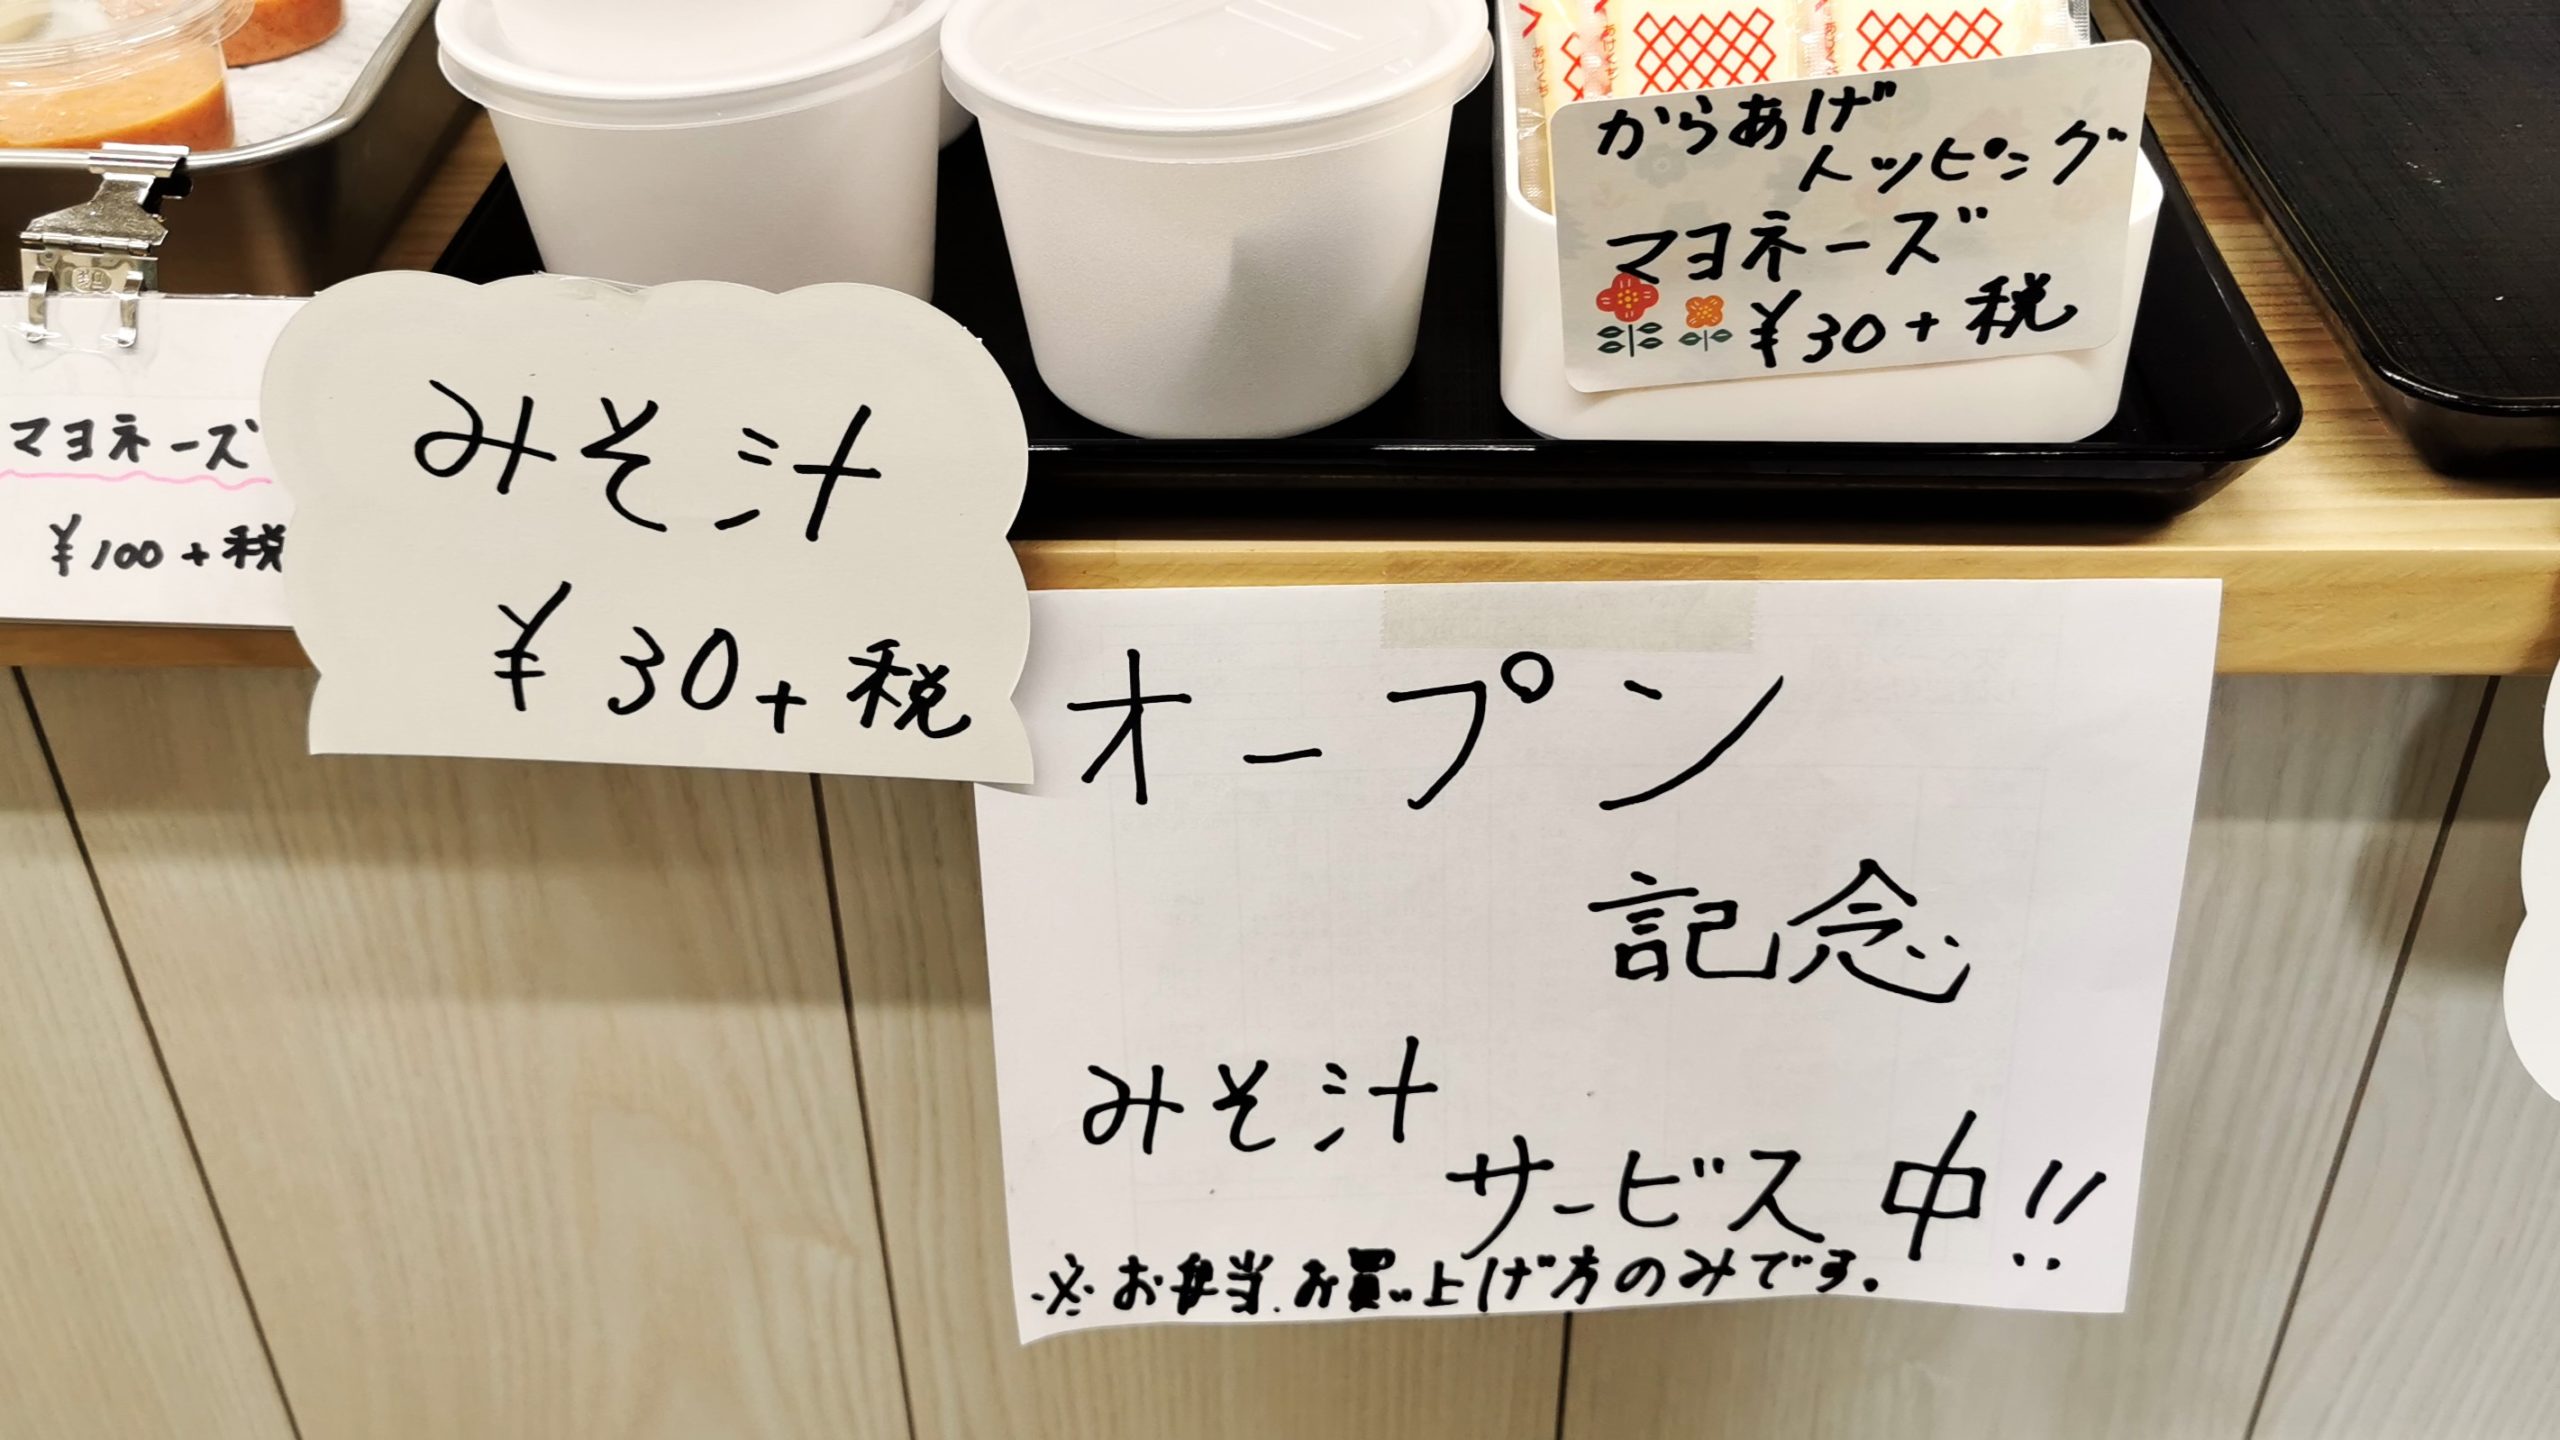 からあげ
トッピング
マヨネーズ
¥30+税
マヨネーズ
¥100+税
みそ汁
¥30+税
オープン
記念
みそ汁
サービス中!!
※お弁当お買い上げ方のみです。